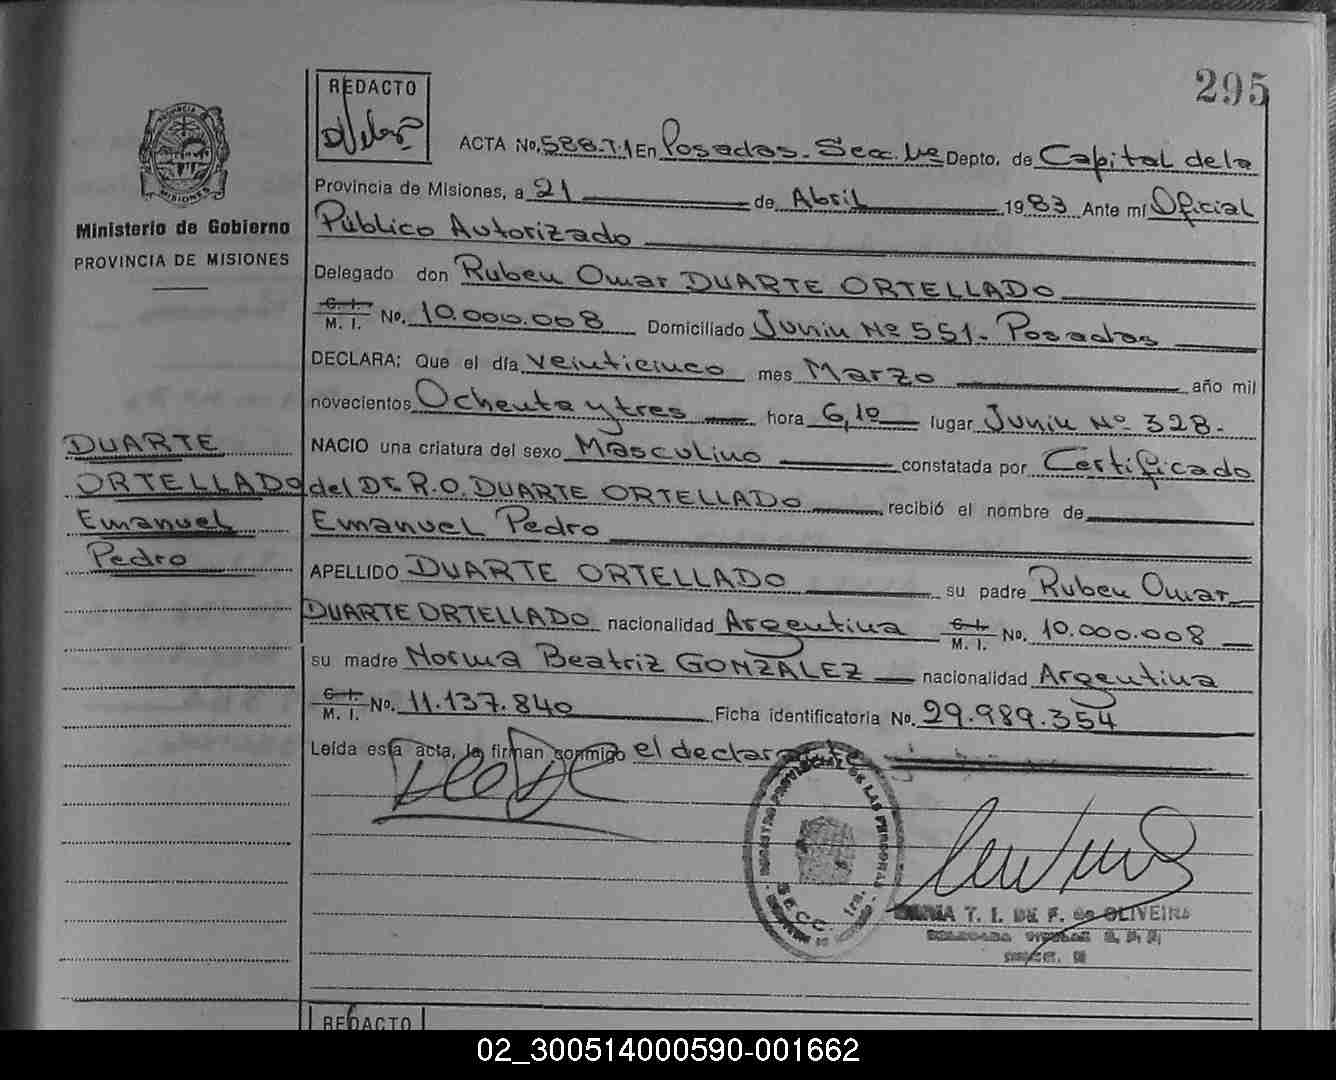 295
REDACTO
ACTA No. 588.T.1 En Posadas. Secc. 1re Depto. de Capital de la
PROVINCIA DE
MISIONES
Provincia de Misiones, a 21 de Abril 1983 Ante mí Oficial
Ministerio de Gobierno
PROVINCIA DE MISIONES
Público Autorizado
Delegado don Ruben Omar DUARTE ORTELLADO
C. I.
M. I. No. 10.000.008 Domiciliado Junin Nº 551. Posadas
DECLARA: Que el día veinticinco mes Marzo año mil
novecientos Ochenta y tres hora 6,10 lugar Junin Nº 328.
NACIO una criatura del sexo Masculino constatada por Certificado
del Dr. R.O. DUARTE ORTELLADO recibió el nombre de
Emanuel Pedro
DUARTE
ORTELLADO
Emanuel
Pedro
APELLIDO DUARTE ORTELLADO su padre Ruben Omar
DUARTE ORTELLADO nacionalidad Argentina C. I.
M. I. No. 10.000.008
su madre Norma Beatriz GONZALEZ nacionalidad Argentina
C. I.
M. I. No. 11.137.840 Ficha identificatoria No. 29.989.354
Leída esta acta, la firman conmigo el declarante
REGISTRO PROVINCIAL DE LAS PERSONAS
SECC. 1ra.
T. I. DE F. de OLIVEIRA
REDACTO
02_300514000590-001662